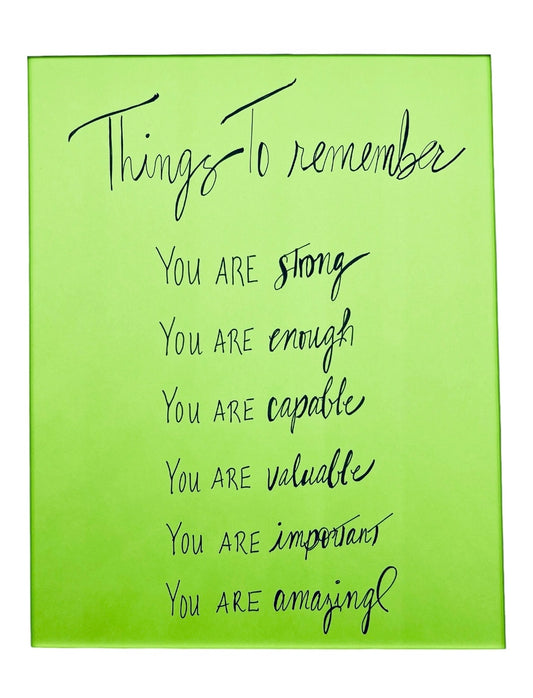 Things To remember
YOU ARE strong
YOU ARE enough
YOU ARE capable
YOU ARE valuable
YOU ARE important
YOU ARE amazing!